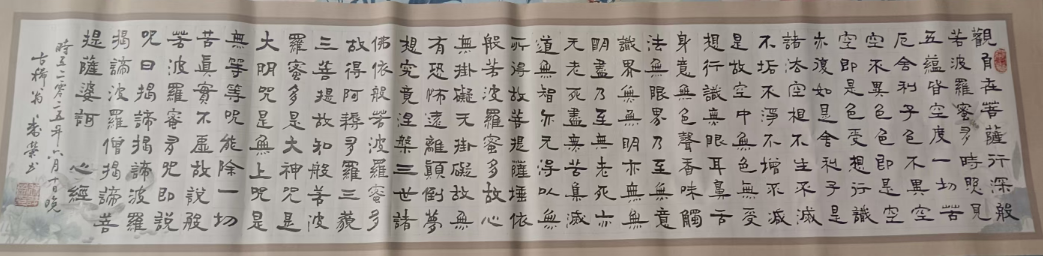 觀自在菩薩行深般
若波羅蜜多時照見
五蘊皆空度一切苦
厄舍利子色不異空
空不異色色即是空
空即是色受想行識
亦復如是舍利子是
諸法空相不生不滅
不垢不淨不增不減
是故空中色無受
想行識無眼耳鼻舌
身意無色聲香味觸
法無眼界乃至無意
識界無無明亦無無
明盡乃至無老死亦
无老死盡無苦集滅
道無智亦无得以無
所得故菩提薩埵依
般若波羅蜜多故心
無掛礙无掛礙故無
有恐怖遠離顛倒夢
想究竟涅槃三世諸
佛依般若波羅蜜多
故得阿耨多羅三藐
三菩提故知般若波
羅蜜多是大神咒是
大明咒是無上咒是
無等等咒能除一切
苦真實不虛故說般
若波羅蜜多咒即說
咒曰揭諦揭諦波羅
揭諦波羅僧揭諦菩
提薩婆訶 心經
時二零二五年六月 日晚
古稀翁